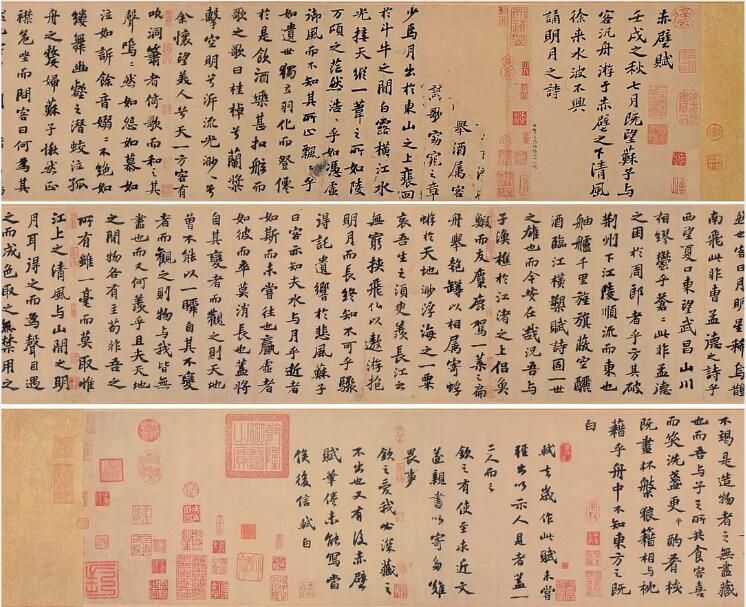 赤壁賦
壬戌之秋七月既望蘇子與
客汎舟游于赤壁之下清風
徐来水波不興
誦明月之詩
舉酒属客
歌窈窕之章
少焉月出於東山之上裵回
於斗牛之間白露橫江水
光接天縱一葦之所如陵
万頃之茫然浩浩乎如馮虛
御風而不知其所止飄飄乎
如遺世獨立羽化而登僊
於是飲酒樂甚扣舷而
歌之歌曰桂棹兮蘭槳
擊空明兮泝流光渺渺兮
余懷望美人兮天一方客有
吹洞簫者倚歌而和之其
聲嗚嗚然如怨如慕如
泣如訴餘音嫋嫋不絕如
縷舞幽壑之潛蛟泣孤
舟之嫠婦蘇子愀然正
襟危坐而問客曰何為其
然也客曰月明星稀烏鵲
南飛此非曹孟德之詩乎
西望夏口東望武昌山川
相繆鬱乎蒼蒼此非孟德
之困於周郎者乎方其破
荊州下江陵順流而東也
舳艫千里旌旗蔽空釃
酒臨江橫槊賦詩固一世
之雄也而今安在哉況吾與
子漁樵於江渚之上侶魚
鰕而友麋鹿駕一葉之扁
舟舉匏罇以相属寄蜉
蝣於天地渺浮海之一粟
哀吾生之須臾羨長江之
無窮挾飛仙以遨游抱
明月而長終知不可乎驟
得託遺響於悲風蘇子
曰客亦知夫水與月乎逝者
如斯而未嘗往也贏虛者
如彼而卒莫消長也蓋將
自其變者而觀之則天地
曾不能以一瞬自其不變
者而觀之則物與我皆無
盡也而又何羨乎且夫天地
之間物各有主苟非吾之
所有雖一毫而莫取惟
江上之清風與山間之明
月耳得之而為聲目遇
之而成色取之無禁用之
不竭是造物者之無盡藏
也而吾與子之所共食客喜
而笑洗盞更酌肴核
既盡杯盤狼籍相與枕
藉乎舟中不知東方之既
白
軾去歲作此賦未嘗
輕出以示人見者蓋一
二人而已
欽之有使至求近文
遂親書以寄多難
畏事
欽之愛我必深藏之
不出也又有後赤壁
賦筆倦未能寫當
俟後信軾白